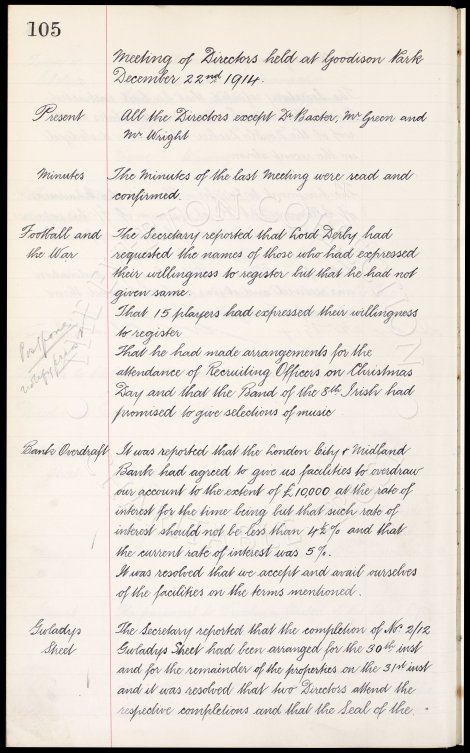 105
Meeting of Directors held at Goodison Park
December 22nd 1914.
Present All the Directors except Dr Baxter, Mr Green and
Mr Wright
Minutes The Minutes of the last Meeting were read and
confirmed
Football and The Secretary reported that Lord Derby had
the War requested the names of those who had expressed
their willingness to register but that he had not
given same
That 15 players had expressed their willingness
to register
Postpone
That he had made arrangements for the
attendance of Recruiting Officers on Christmas
Day and that the Band of the 8th Irish had
promised to give selections of music
Bank Overdraft It was reported that the London City & Midland
Bank had agreed to give us facilities to overdraw
our account to the extent of £10,000 at the rate of
interest for the time being but that such rate of
interest should not be less than 4½% and that
the current rate of interest was 5%.
It was resolved that we accept and avail ourselves
of the facilities on the terms mentioned.
Gwladys The Secretary reported that the completion of No 2/12
Street Gwladys Street had been arranged for the 30th inst
and for the remainder of the properties on the 31st inst
and it was resolved that two Directors attend the
respective completions and that the Seal of the